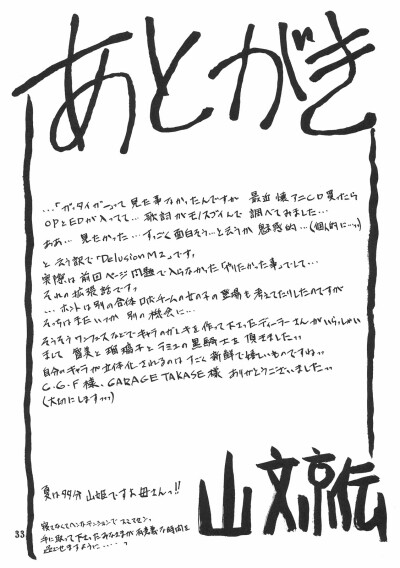 あとがき
…「ガッタイガー」って見た事なかったんですが 最近 懐アニCD買ったら
OPとEDが入ってて… 歌詞がモノスゴイんで 調べてみました…
ああ… 見たかった… すっごく面白そう…と云うか 魅惑的…(個人的に…ッッ)
と云う訳で「Delusion M2」です。
実際は前回ページ問題で入らなかった「やりたかった事」でして…
それの拡張話です。
…ホントは別の合体ロボチームの女の子の登場も考えてたりしたのですが
そっちはまたいつか 別の機会に…
そうそうワンフェスなどでキャラのガレキを作って下さったディーラーさんがいらっしゃい
まして 留美と瑠璃子とラミュの黒騎士を頂きましたッッ
自分のキャラが立体化されるのはすごく新鮮で嬉しいものですねッッ
C.G.F様、GARAGE TAKASE様 ありがとうございましたッッ
(大切にしますッッッ)
夏は 山姫ですよ母さんっ!!
寝てなくてヘンなテンションで スミマセン。
手に取って下さったみなさまが 有意義な時間を
過ごせますように……
山文京伝
33